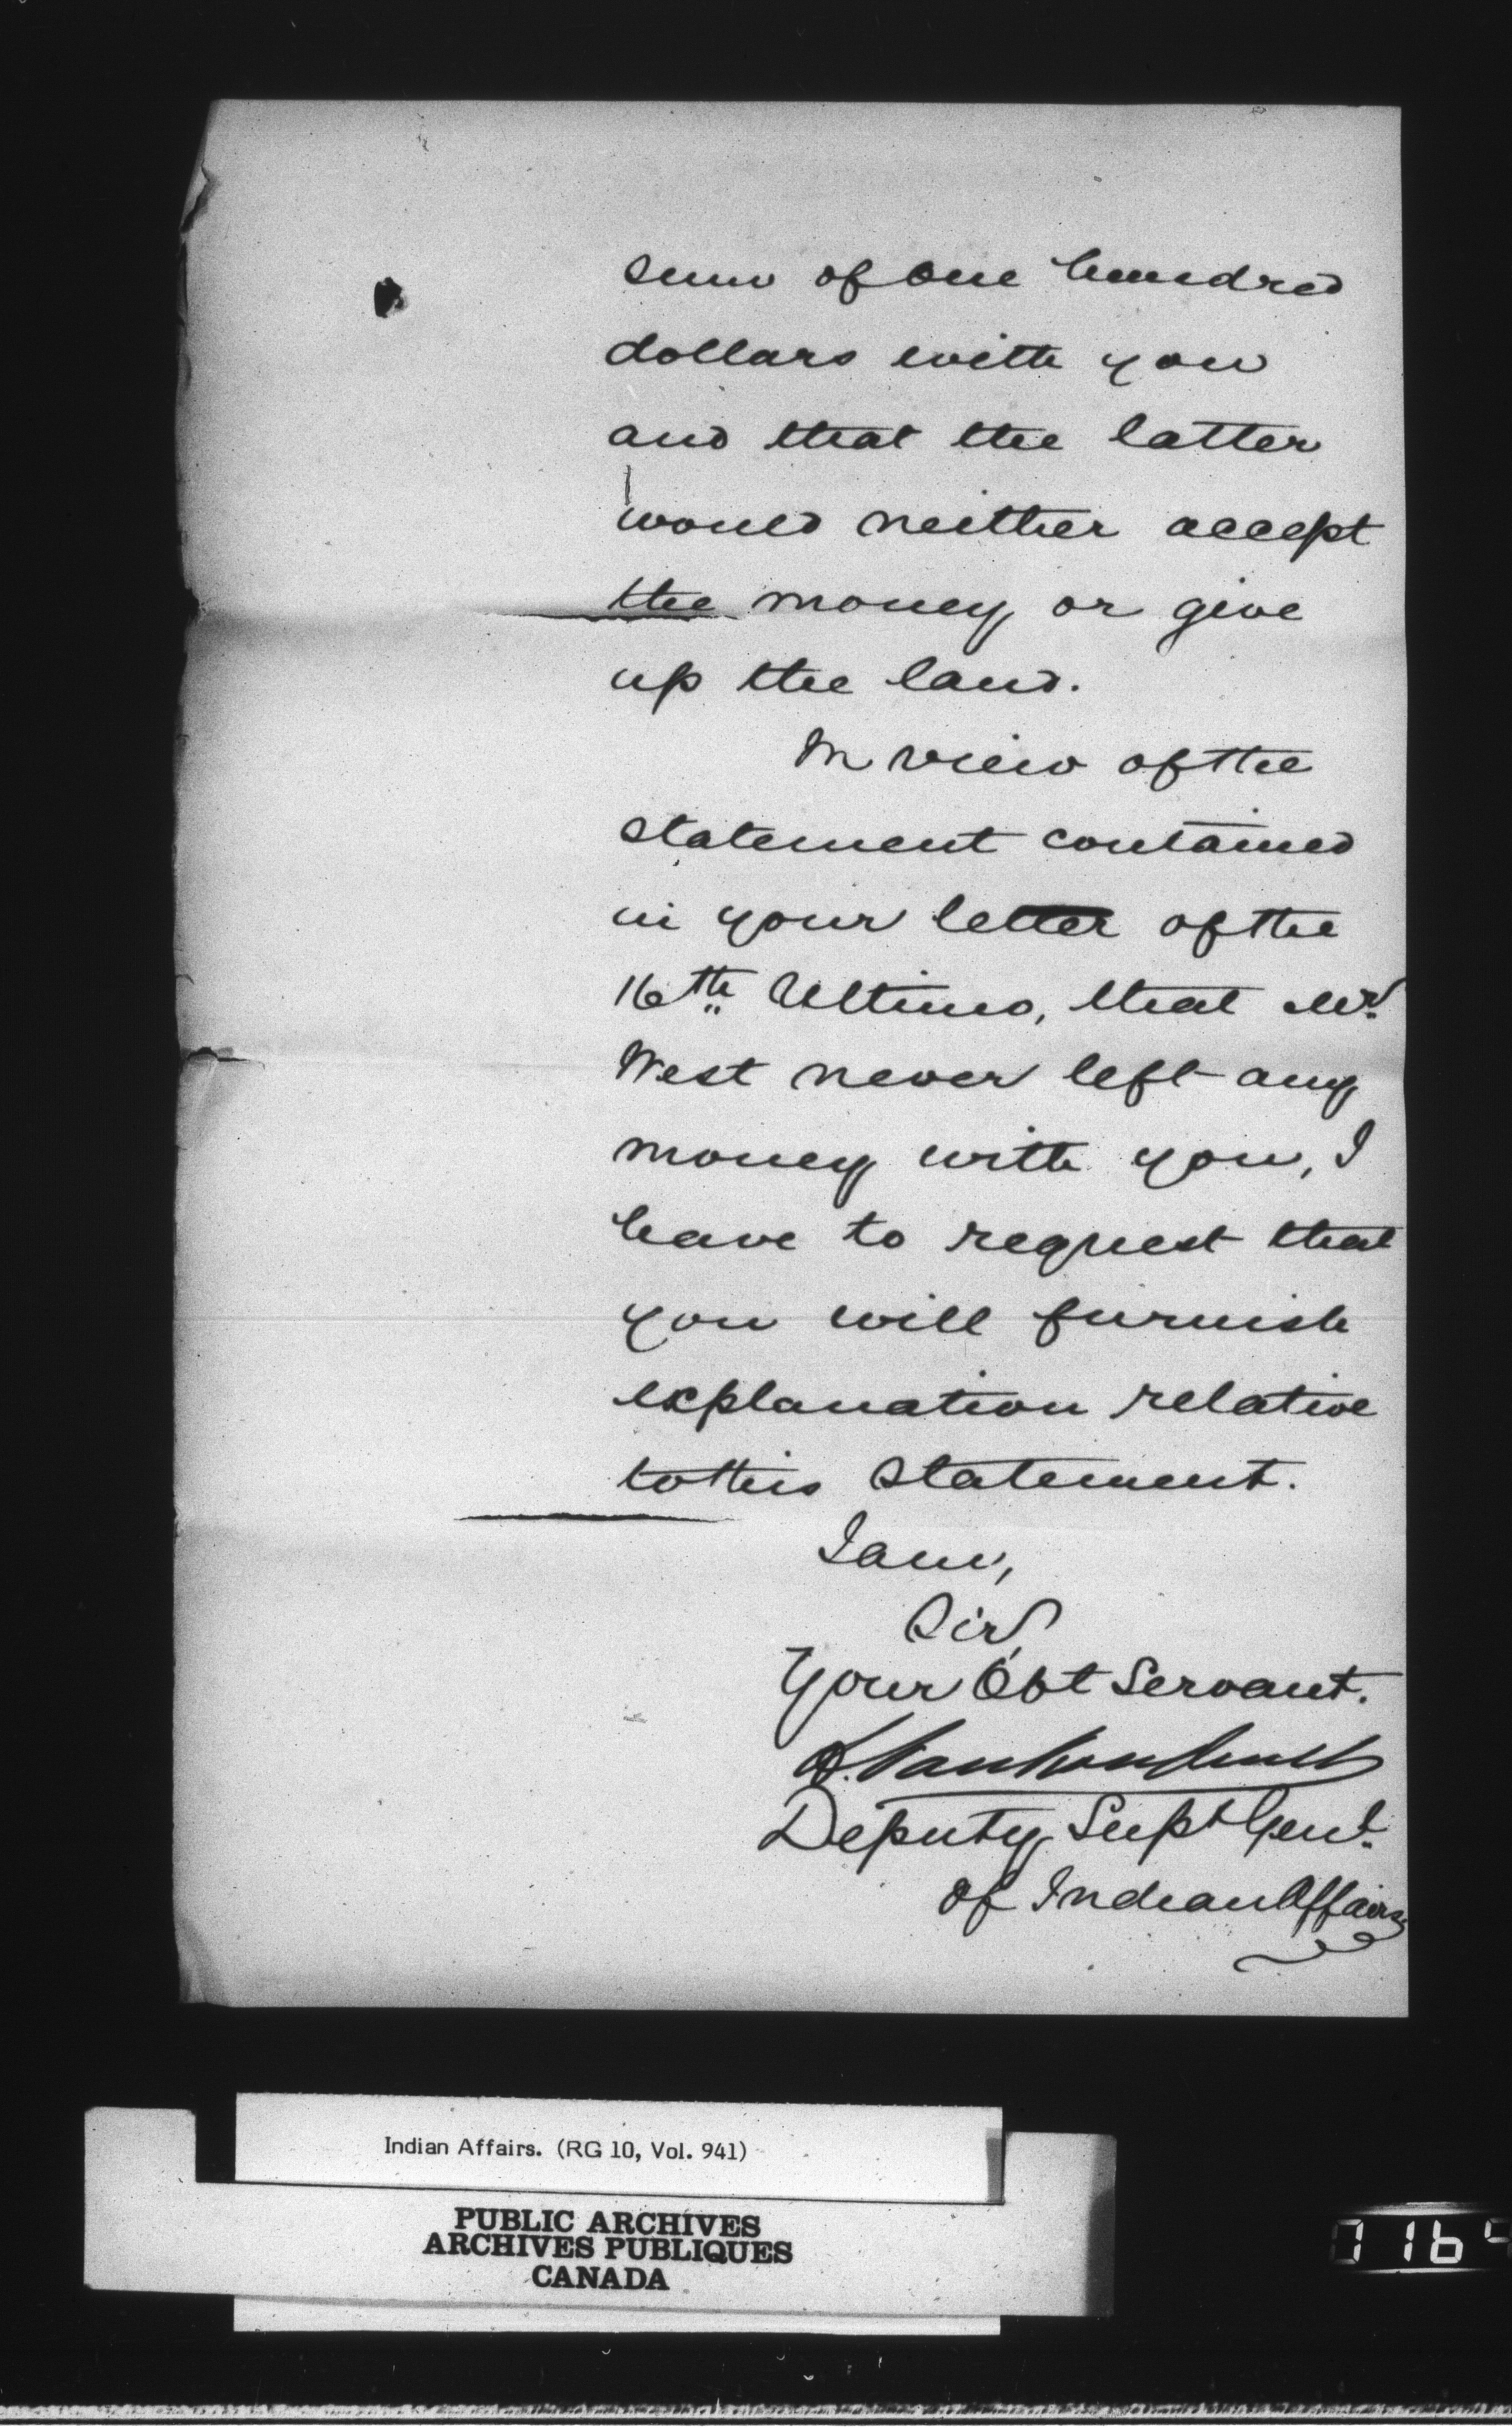 sum of one hundred
dollars with you
and that the latter
would neither accept
the money or give
up the land.
In view of the
statement contained
in your letter of the
16th Ultimo, that Mr.
West never left any
money with you, I
have to request that
you will furnish
explanation relative
to this statement.
I am,
Sir,
Your Obt Servant.
L. Vankoughnet
Deputy Supt Genl.
of Indian Affairs
Indian Affairs. (RG 10, Vol. 941)
PUBLIC ARCHIVES
ARCHIVES PUBLIQUES
CANADA